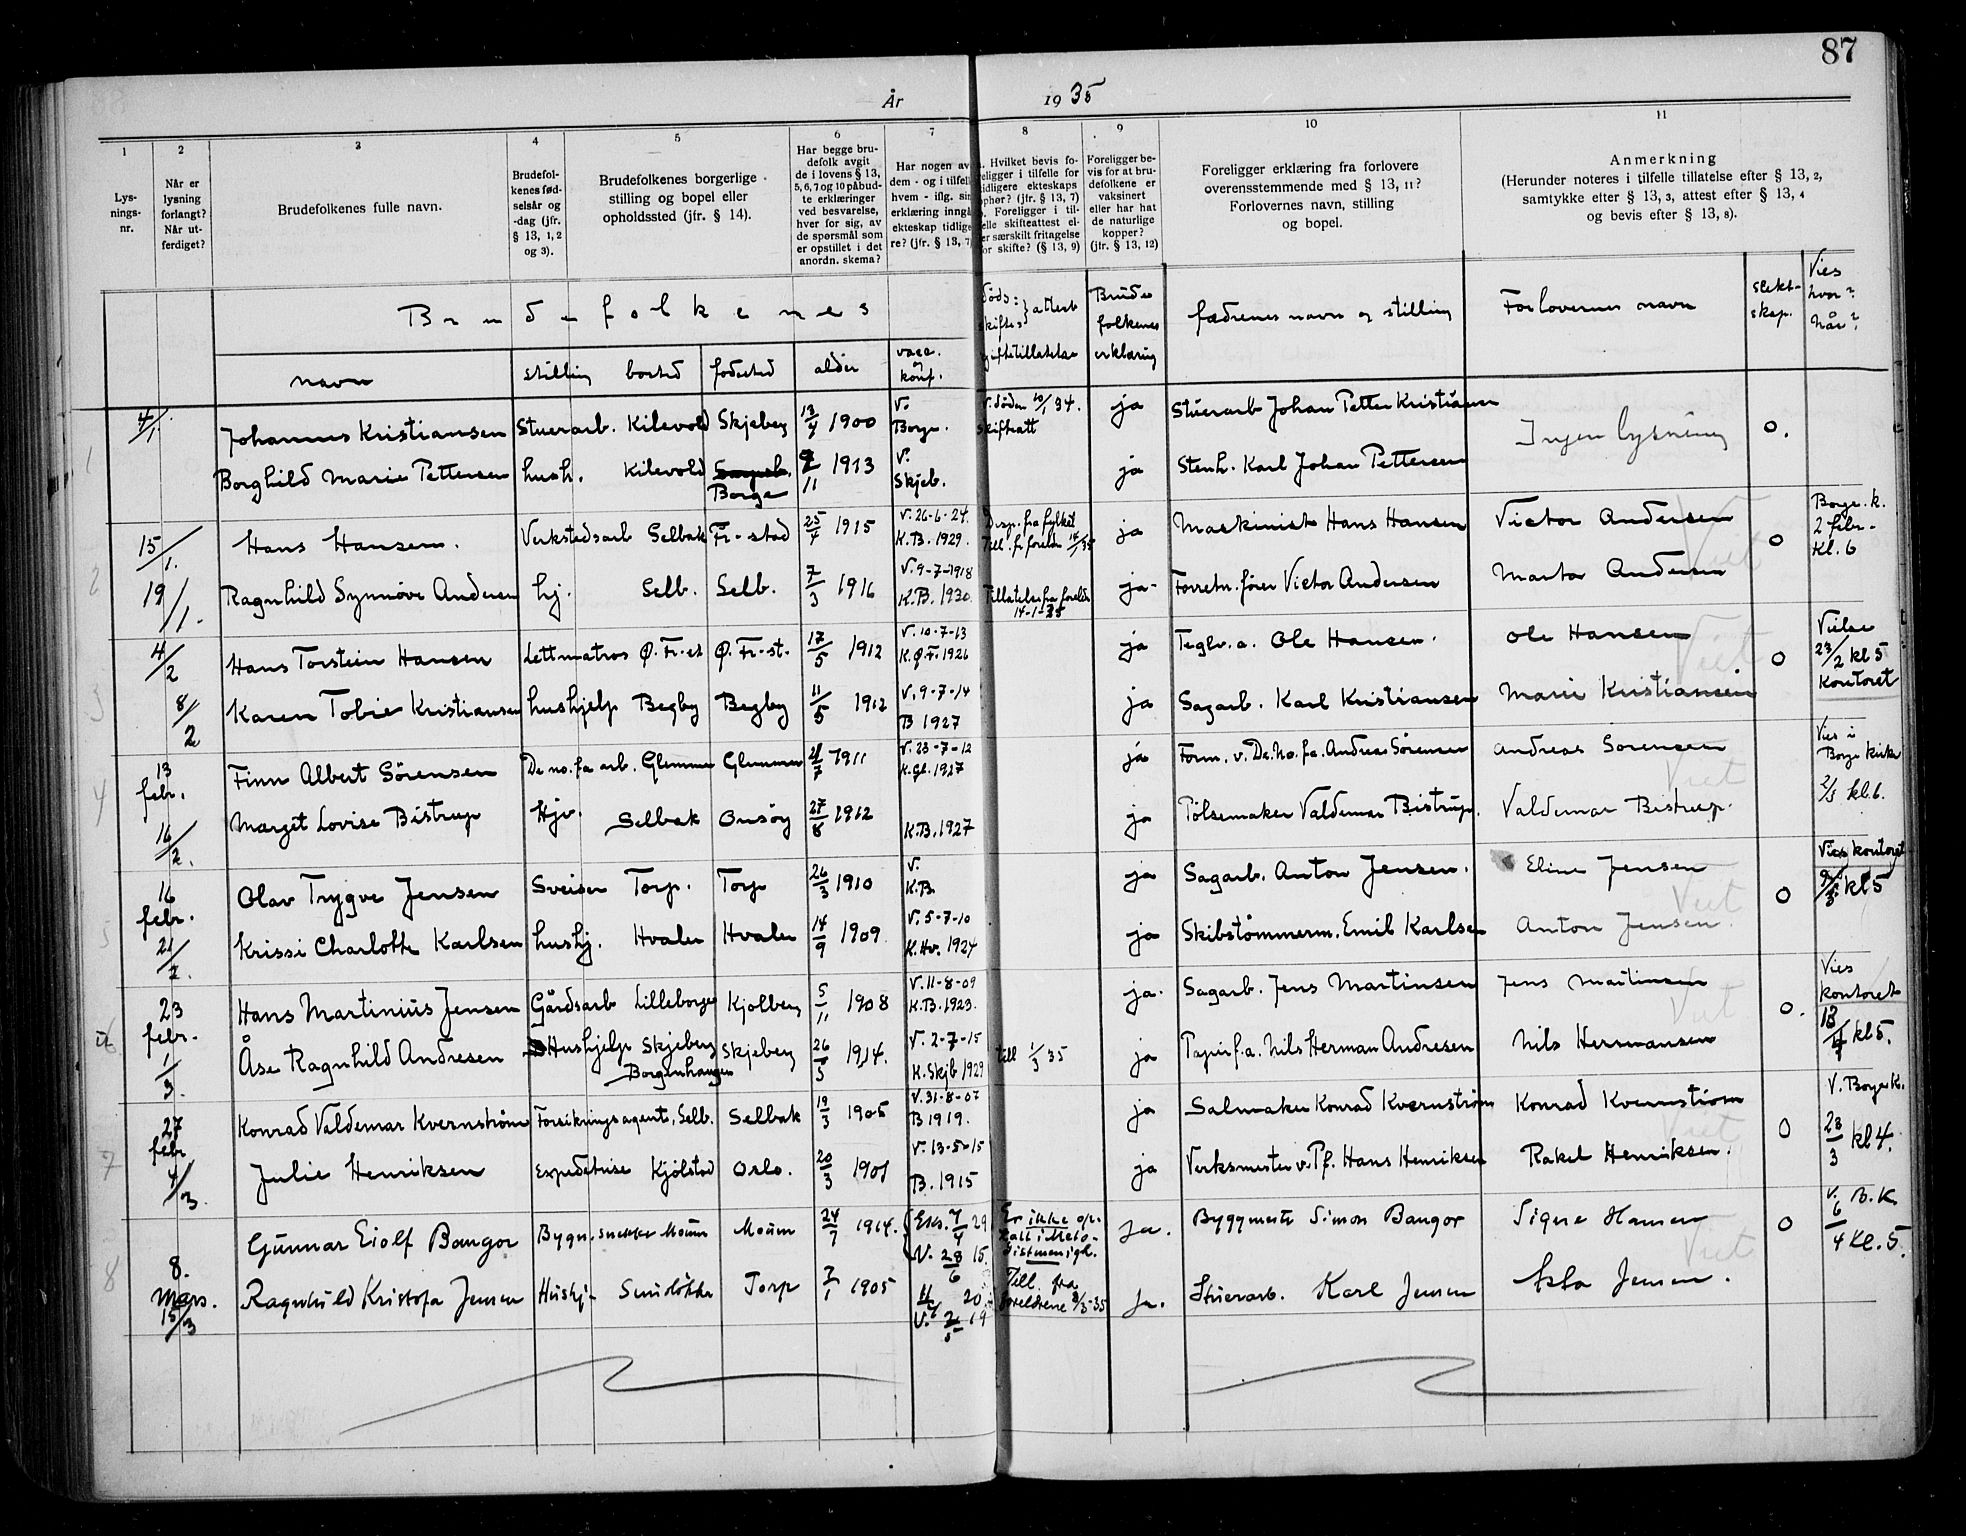 87
År 1935
1 2 3 4 5 6 7 8 9 10 11
Lys-
nings-
nr.
Når er
lysning
forlangt?
Når ut-
ferdiget?
Brudefolkenes fulle navn.
Brudefol-
kenes fød-
selsår og
-dag (jfr.
§ 13, 1, 2
og 3).
Brudefolkenes borgerlige
stilling og bopel eller
opholdssted (jfr. § 14).
Har begge bru-
defolk avgit
de i lovens § 13,
5, 6, 7 og 10 påbud-
te erklæringer
ved besvarelse,
hver for sig, av
de spørsmål som
er opstillet i det
anordn. skema?
Har nogen av
dem - og i tilfelle
hvem - iflg. sin
erklæring inngå
ekteskap tidlige
re? (jfr. § 13, 7)
Hvilket bevis fo-
religger i tilfelle for
tidligere ekteskaps
ophør? (jfr. § 13, 7)
Foreligger i til-
felle skifteattest el-
ler særskilt fritagelse
for skifte? (§ 13, 9)
Foreligger be-
vis for at bru-
defolkene er
vaksinert
eller har hat
de naturlige
kopper?
(jfr. § 13, 12)
Foreligger erklæring fra forlovere
overensstemmende med § 13, 11?
Forlovernes navn, stilling
og bopel.
Anmerkning
(Herunder noteres i tilfelle tillatelse efter § 13, 2,
samtykke efter § 13, 3, attest efter § 13, 4
og bevis efter § 13, 8).
Brudefolkenes
navn stilling bosted fødested alder vacc. og konf.
Døds: skiftes } attest
giftetillatelse
Brude
folkenes
erklæring
fædrenes navn og stilling
Forlovernes navn
slekt-
skap.
Vies
hvor?
når?
1 4/1. Johannes Kristiansen Stuerarb. Kilevold Skjeberg 13/4 1900 V. Borge. V. døden 10/1 34. skifteatt ja Stuerarb Johan Petter Kristiansen Ingen lysning 0.
Borghild Marie Pettersen hush. Kilevold Borge 9/11 1913 V. Skjeb. ja Stenh. Karl Johan Pettersen
2 15/1. Hans Hansen. Verkstedsarb Selbak Fr-stad 25/4 1915 V. 26-6-24. K.B. 1929. Disp. fra fylket Till. fr foreldr 14/1 35 ja Maskinist Hans Hansen Victor Andersen 0 Borge. k. 2 febr- Kl. 6
19/1. Ragnhild Synnøve Andersen hj. Selb. Selb. 7/3 1916 V. 9-7-1918 K.B. 1930. Tillatelse fra foreldr 14-1-35 ja- Forretn. fører Victor Andersen Marta Andersen Viet
3 4/2 Hans Torstein Hansen Lettmatros Ø. Fr-st Ø. Fr-st. 17/5 1912 V. 10-7-13 K.Ø.F. 1926 ja Teglv. a. Ole Hansen. Ole Hansen 0 Vielse 23/2 kl 5 kontoret
8/2 Karen Tobie Kristiansen hushjelp Begby Begby 11/5 1912 V. 9-7-14 B 1927 ja Sagarb. Karl Kristiansen Marie Kristiansen Viet
4 13 febr. Finn Albert Sörensen De no. fa arb. Glemmen Glemmen 21/7 1911 V. 23-7-12 K. Gl. 1927 ja Form. v. De. No. fa. Andreas Sörensen Andreas Sörensen Vies i Borge kirke 2/3 kl. 6.
16/2. Marget Lovise Bistrup Hjv. Selbak Onsøy 27/8 1912 K.B. 1927 ja Pölsemaker Valdemar Bistrup. Valdemar Bistrup. Viet
5 16 febr. Olav Trygve Jensen Sveiser Torp. Torp 26/3 1910 V. K.B. ja Sagarb. Anton Jensen. Eline Jensen 0 Vies kontoret 9/3 kl 5
21/2. Krissi Charlotte Karlsen hushj. Hvaler Hvaler 14/9 1909 V. 5-7-10 K. Hv. 1924 ja Skibstømmerm. Emil Karlsen Anton Jensen. Viet
23 febr. Hans Martinius Jensen Gårdsarb Lilleborge Kjølberg 5/11 1908 V. 11-8-09 K.B. 1923. ja. Sagarb. Jens Martinsen Jens Martinsen 0. Vies kontoret 13/4 kl 5.
1/3. Åse Ragnhild Andresen Hushjelp Skjeberg Borgenhaugen Skjeberg 26/5 1914. V. 2-7-15 K. Skjb 1929 till 1/3 35 ja Papirf.a. Nils Herman Andresen Nils Hermansen Viet
7 27 febr Konrad Valdemar Kvernström Forsikringsagent, Selb. Selbak 19/3 1905 V. 31-8-07 B 1919. ja Salmaker Konrad Kvernström Konrad Kvernström 0 V. Borge K. 23/3 kl 4.
4/3. Julie Henriksen Expeditrise Kjölstad Oslo. 20/3 1901 V. 13-5-15 B. 1915 ja Verksmester v. Pf. Hans Henriksen Rakel Henriksen. Viet
8 8. Mars. Gunnar Eiolf Bangor Bygn. snekker Moum Moum 24/7 1914. Eks. 7/4 29 V. 28/6 15. Er ikke op- tatt i Meto- distmenigh. ja. Byggmester Simon Bangor Signe Hansen 0 V. B.K. 6/4 Kl. 5.
15/3 Ragnhild Kristofa Jensen Hushj- Sundløkka Torp 7/1 1905 20 V. 2/5 19 Till. fra foreldrene 8/3-35 ja. Stuerarb. Karl Jensen Asta Jensen. Viet